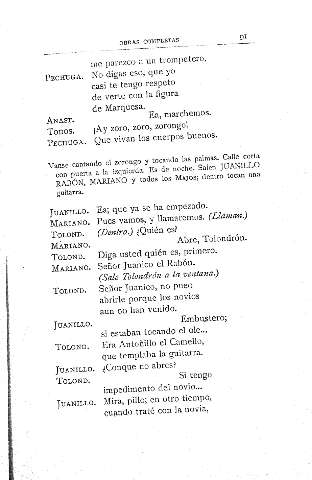 OBRAS COMPLETAS 91
me parezco a un trompetero.
PECHUGA. No digas eso, que yo
casi te tengo respeto
de verte con la figura
de Marquesa.
ANAST. Ea, marchemos.
TODOS. ¡Ay zoro, zoro, zorongo!
PECHUGA. Que vivan los cuerpos buenos.
Vanse cantando el zorongo y tocando las palmas. Calle corta
con puerta a la izquierda. Es de noche. Salen JUANILLO
RABÓN, MARIANO y todos los Majos; dentro tocan una
guitarra.
JUANILLO. Ea; que ya se ha empezado.
MARIANO. Pues vamos, y llamaremos. (Llaman.)
TOLOND. (Dentro.) ¿Quién es?
MARIANO. Abre, Tolondrón.
TOLOND. Diga usted quién es, primero.
MARIANO. Señor Juanico el Rabón.
(Sale Tolondrón a la ventana.)
TOLOND. Señor Juanico, no pueo
abrirle porque los novios
aun no han venido.
JUANILLO. Embustero;
si estaban tocando el ole...
TOLOND. Era Antoñillo el Camello,
que templaba la guitarra.
JUANILLO. ¿Conque no abres?
TOLOND. Si tengo
impedimento del novio...
JUANILLO. Mira, pillo; en otro tiempo,
cuando traté con la novia,